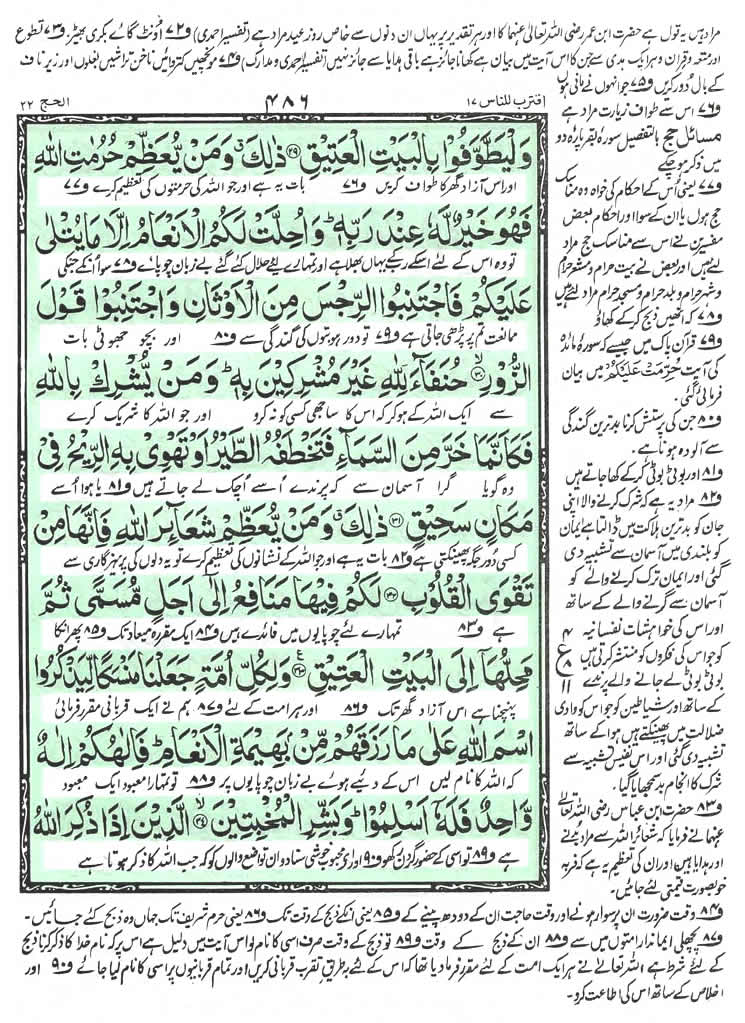 مراد ہیں یہ قول ہے حضرت ابن عمر رضی اللہ تعالٰی عنہما کا اور ہر تقدیر پر یہاں ان دنوں سے خاص روز عید مراد ہے (تفسیر احمدی) و۷۲ اونٹ گائے بکری بھیڑ و۷۳ تطوع
اور متعہ و قِران و ہر ایک ہدی سے جن کا اس آیت میں بیان ہے کھانا جائز ہے باقی ہدایا سے جائز نہیں (تفسیر احمدی و مدارک) و۷۴ مونچھیں کتروائیں ناخن تراشیں بغلوں اور زیر ناف
کے بال دور کریں و۷۵ جو انہوں نے مانی ہوں
اقترب للناس ۱۷
۴۸۶
الحج ۲۲
وَلْيَطَّوَّفُوْا بِالْبَيْتِ الْعَتِيْقِ ﴿۲۹﴾ ذٰلِكَ ۗ وَمَنْ يُّعَظِّمْ حُرُمٰتِ اللّٰهِ
اور اس آزاد گھر کا طواف کریں و۷۶ بات یہ ہے اور جو اللہ کی حرمتوں کی تعظیم کرے و۷۷
فَهُوَ خَيْرٌ لَّهٗ عِنْدَ رَبِّهٖ ؕ وَاُحِلَّتْ لَكُمُ الْاَنْعَامُ اِلَّا مَا يُتْلٰى
تو وہ اس کے لئے اسکے رب کے یہاں بھلا ہے اور تمہارے لئے حلال کئے گئے بے زبان چوپائے و۷۸ سوا انکے جنکی
عَلَيْكُمْ فَاجْتَنِبُوا الرِّجْسَ مِنَ الْاَوْثَانِ وَاجْتَنِبُوْا قَوْلَ
ممانعت تم پر پڑھی جاتی ہے و۷۹ تو دور ہو بتوں کی گندگی سے و۸۰ اور بچو جھوٹی بات
الزُّوْرِ ﴿۳۰﴾ حُنَفَآءَ لِلّٰهِ غَيْرَ مُشْرِكِيْنَ بِهٖ ؕ وَمَنْ يُّشْرِكْ بِاللّٰهِ
سے ایک اللہ کے ہو کر کہ اس کا ساجھی کسی کو نہ کرو اور جو اللہ کا شریک کرے
فَكَاَنَّمَا خَرَّ مِنَ السَّمَآءِ فَتَخْطَفُهُ الطَّيْرُ اَوْ تَهْوِيْ بِهِ الرِّيْحُ فِيْ
وہ گویا گرا آسمان سے کہ پرندے اُسے اُچک لے جاتے ہیں و۸۱ یا ہوا اُسے
مَكَانٍ سَحِيْقٍ ﴿۳۱﴾ ذٰلِكَ ۗ وَمَنْ يُّعَظِّمْ شَعَآئِرَ اللّٰهِ فَاِنَّهَا مِنْ
کسی دور جگہ پھینکتی ہے و۸۲ بات یہ ہے اور جو اللہ کے نشانوں کی تعظیم کرے تو یہ دلوں کی پرہیزگاری سے
تَقْوَى الْقُلُوْبِ ﴿۳۲﴾ لَكُمْ فِيْهَا مَنَافِعُ اِلٰٓى اَجَلٍ مُّسَمًّى ثُمَّ
ہے و۸۳ تمہارے لئے چوپایوں میں فائدے ہیں و۸۴ ایک مقررہ میعاد تک و۸۵ پھر انکا
مَحِلُّهَآ اِلَى الْبَيْتِ الْعَتِيْقِ ﴿۳۳﴾ وَلِكُلِّ اُمَّةٍ جَعَلْنَا مَنْسَكًا لِّيَذْكُرُوا
پہنچنا ہے اس آزاد گھر تک و۸۶ اور ہر امت کے لئے و۸۷ ہم نے ایک قربانی مقرر فرمائی
اسْمَ اللّٰهِ عَلٰى مَا رَزَقَهُمْ مِّنْۢ بَهِيْمَةِ الْاَنْعَامِ ؕ فَاِلٰهُكُمْ اِلٰهٌ
کہ اللہ کا نام لیں اس کے دیے ہوئے بے زبان چوپایوں پر و۸۸ تو تمہارا معبود ایک معبود
وَّاحِدٌ فَلَهٗٓ اَسْلِمُوْا ؕ وَبَشِّرِ الْمُخْبِتِيْنَ ﴿۳۴﴾ الَّذِيْنَ اِذَا ذُكِرَ اللّٰهُ
ہے و۸۹ تو اسی کے حضور گردن رکھو و۹۰ اور اے محبوب خوشی سنا دو ان تواضع والوں کو کہ جب اللہ کا ذکر ہوتا ہے
و۷۶ اس سے طواف زیارت مراد ہے
مسائل حج بالتفصیل سورۂ بقر پارہ دو
میں ذکر ہو چکے
و۷۷ یعنی اُس کے احکام کی خواہ وہ مناسک
حج ہوں یا ان کے سوا اور احکام بعض
مفسرین نے اس سے مناسک حج مراد
لئے ہیں اور بعض نے بیت حرام و مشعر حرام
و شہر حرام و بلد حرام و مسجد حرام مراد لئے ہیں
و۷۸ کہ انھیں ذبح کر کے کھاؤ
و۷۹ قرآن پاک میں جیسے کہ سورۂ مائدہ
کی آیت حُرِّمَتْ عَلَیْکُمْ میں بیان
فرمائی گئی۔
و۸۰ جن کی پرستش کرنا بدترین گندگی
سے آلودہ ہونا ہے۔
و۸۱ اور بوٹی بوٹی کر کے کھا جاتے ہیں
و۸۲ مراد یہ ہے کہ شرک کرنے والا اپنی
جان کو بدترین ہلاکت میں ڈالتا ہے ایمان
کو بلندی میں آسمان سے تشبیہ دی
گئی اور ایمان ترک کرنے والے کو
آسمان سے گرنے والے کے ساتھ
اور اس کی خواہشات نفسانیہ
کو جو اس کی فکروں کو منتشر کرتی ہیں
بوٹی بوٹی لے جانے والے پرندے
کے ساتھ اور شیاطین کو جو اس کو وادی
ضلالت میں پھینکتے ہیں ہوا کے ساتھ
تشبیہ دی گئی اور اس نفیس تشبیہ سے
شرک کا انجام بد سمجھایا گیا۔
و۸۳ حضرت ابن عباس رضی اللہ تعالٰی
عنہما نے فرمایا کہ شعائر اللہ سے مراد بُدنے
اور ہدایا ہیں اور ان کی تعظیم یہ ہے کہ فربہ
خوبصورت قیمتی لئے جائیں۔
۴
ع
۸
۱۱
و۸۴ وقت ضرورت ان پر سوار ہونے اور وقت حاجت ان کے دودھ پینے کے و۸۵ یعنی انکے ذبح کے وقت تک و۸۶ یعنی حرم شریف تک جہاں وہ ذبح کئے جائیں۔
و۸۷ پچھلی ایماندار امتوں میں سے و۸۸ ان کے ذبح کے وقت و۸۹ تو ذبح کے وقت صرف اسی کا نام لو اس آیت میں دلیل ہے اس پر کہ نام خدا کا ذکر کرنا ذبح
کے لئے شرط ہے اللہ تعالٰی نے ہر ایک امت کے لئے مقرر فرما دیا تھا کہ اس کے لئے بطریق تقرب قربانی کریں اور تمام قربانیوں پر اسی کا نام لیا جائے و۹۰ اور
اخلاص کے ساتھ اس کی اطاعت کرو۔